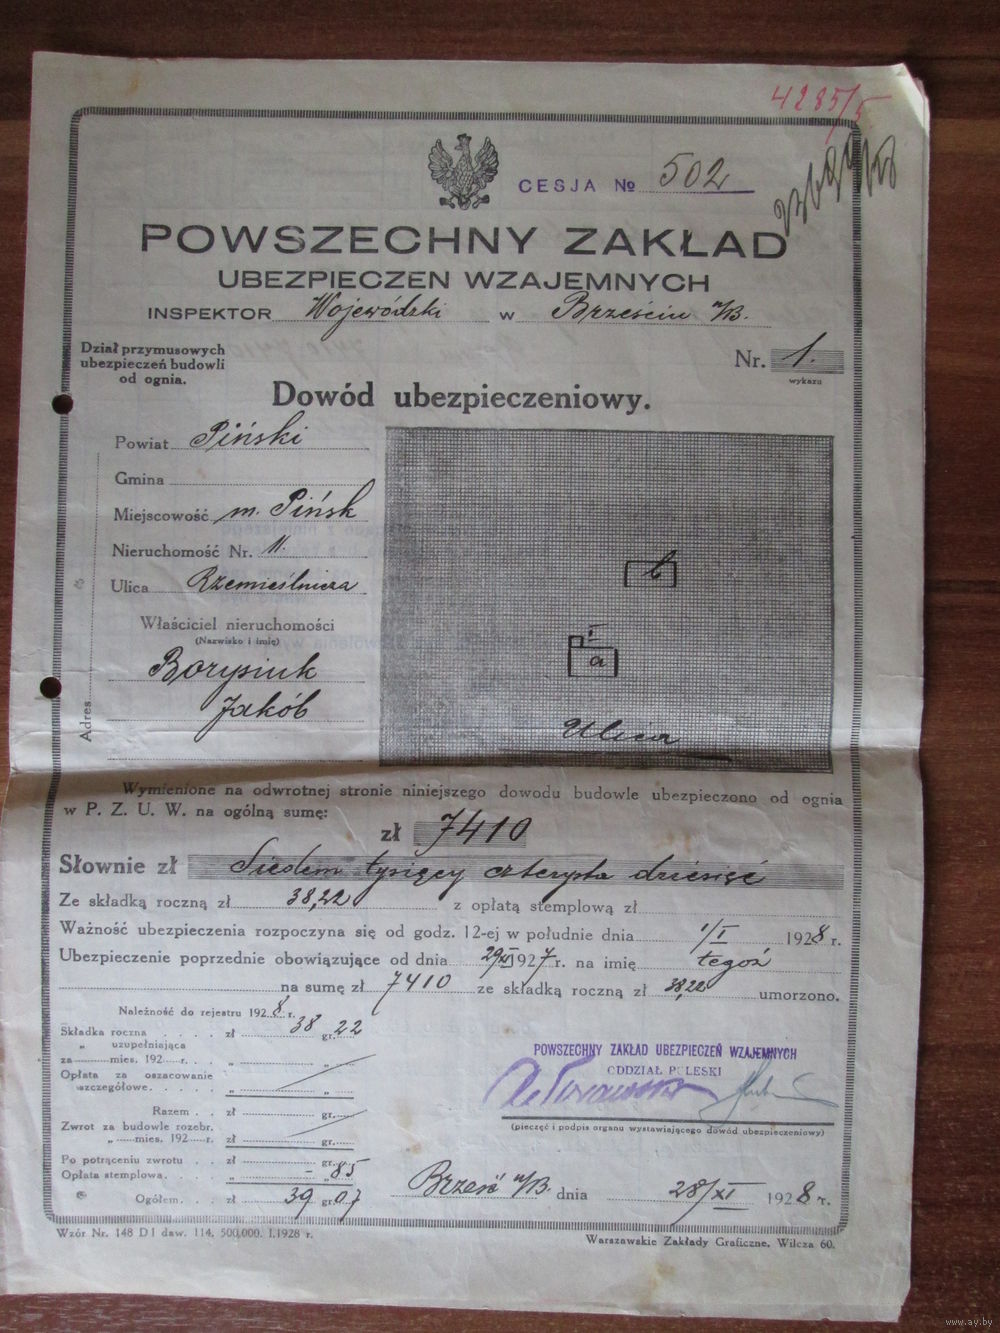 4285/5
CESJA № 502
POWSZECHNY ZAKŁAD
UBEZPIECZEŃ WZAJEMNYCH
INSPEKTOR Wojewódzki w Brześciu n/B.
Dział przymusowych
ubezpieczeń budowli
od ognia.
Nr. 1.
wykazu
Dowód ubezpieczeniowy.
Powiat Piński
Gmina
Miejscowość m. Pińsk
Nieruchomość Nr. 11.
Ulica Rzemieślnicza
Właściciel nieruchomości
(Nazwisko i imię)
Borysiuk
Jakób
Adres
b
a
Ulica
Wymienione na odwrotnej stronie niniejszego dowodu budowle ubezpieczono od ognia
w P. Z. U. W. na ogólną sumę:
zł 7410
Słownie zł Siedem tysięcy czterysta dziesięć
Ze składką roczną zł 38,22 z opłatą stemplową zł
Ważność ubezpieczenia rozpoczyna się od godz. 12-ej w południe dnia 1/I 1928 r.
Ubezpieczenie poprzednie obowiązujące od dnia 29/XI 1927 r. na imię tegoż
na sumę zł 7410 ze składką roczną zł 38,22 umorzono.
Należność do rejestru 1928 r.
Składka roczna . . . . zł 38 gr. 22
„ uzupełniająca
za mies. 192 r. „ „
Opłata za oszacowanie
szczegółowe. . . . . „ „
Razem . . zł gr.
Zwrot za budowle rozebr.
„ mies. 192 r. zł gr.
Po potrąceniu zwrotu . . zł gr.
Opłata stemplowa. . . . „ - „ 85
Ogółem. . . zł 39 gr. 07
POWSZECHNY ZAKŁAD UBEZPIECZEŃ WZAJEMNYCH
ODDZIAŁ POLESKI
(pieczęć i podpis organu wystawiającego dowód ubezpieczeniowy)
Brześć n/B. dnia 28/XI 1928 r.
Wzór Nr. 148 D I daw. 114. 500,000. I.1928 r.
Warszawskie Zakłady Graficzne, Wilcza 60.
www.ay.by